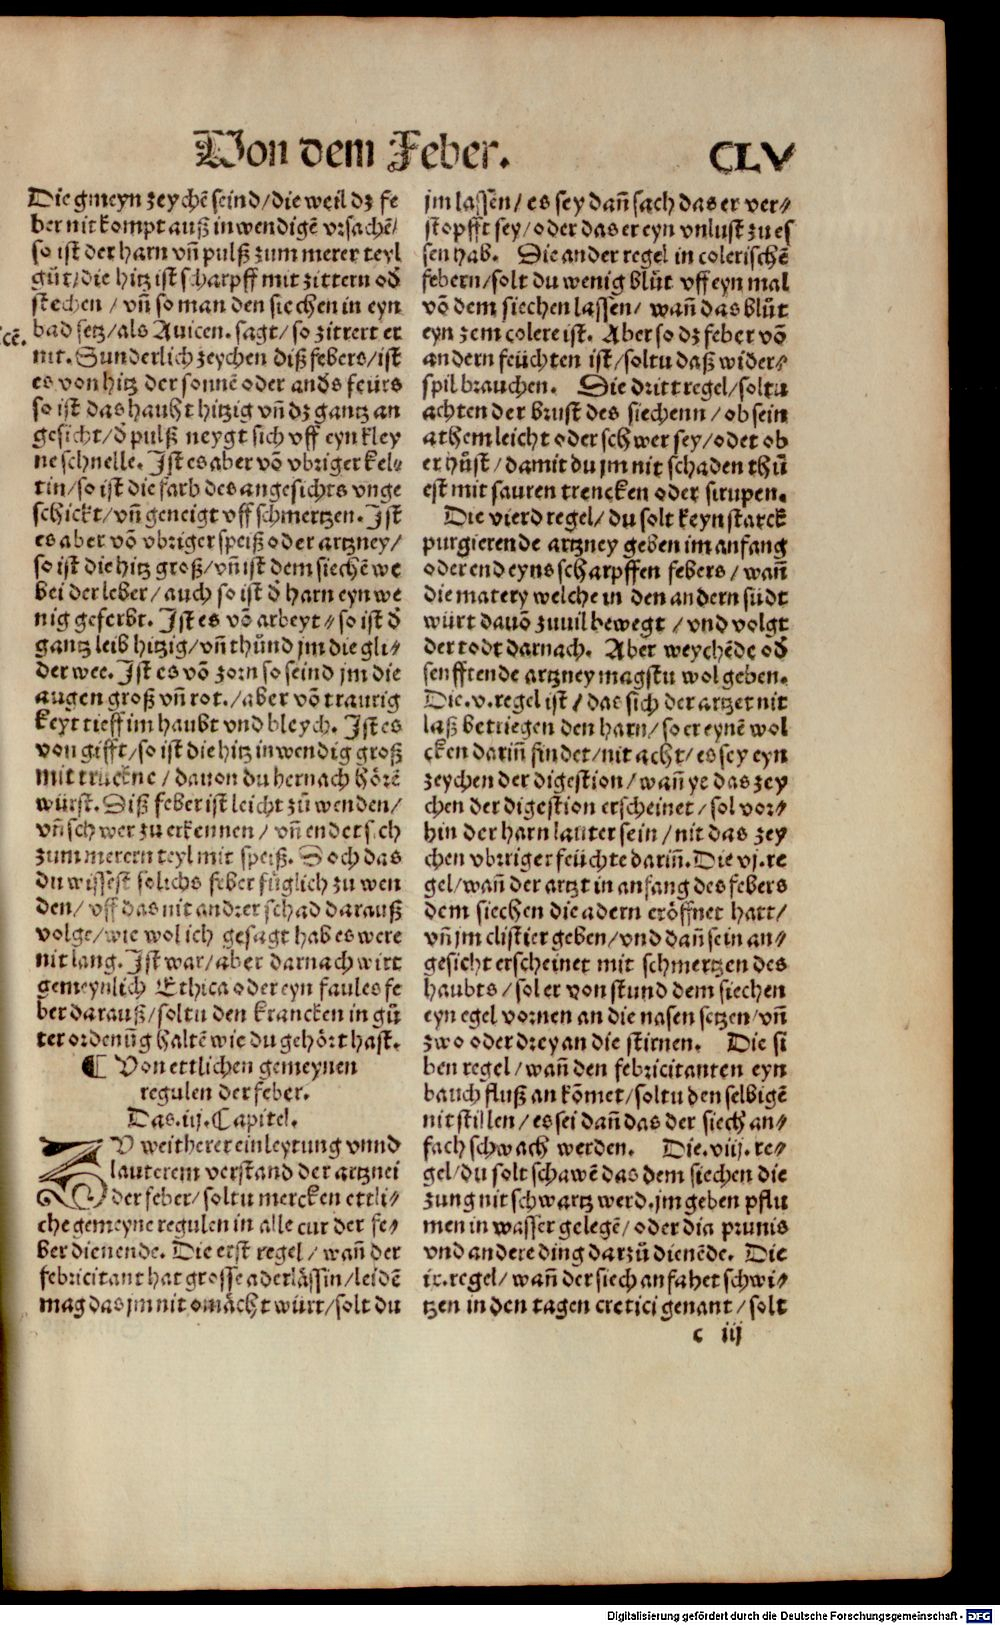 Von dem Feber.
CLV
Die gmeyn zeychē seind/die weil dz fe
ber nit kompt auß inwendigē vrsachē/
so ist der harn vn̄ pulß zum merer teyl
gůt/die hitz ist scharpff mit zittern od̓
stechen / vn̄ so man den siechen in eyn
bad setz/als Auicen. sagt/so zitrert er
nit. Sunderlich zeychen diß febers/ist
es von hitz der sonnē oder and̓s feürs
so ist das hauht hitzig vn̄ dz gantz an
gesicht/d̓ pulß neygt sich vff eyn kley
ne schnelle. Ist es aber vō vbriger kel⸗
tin/so ist die farb des angesichts vnge
schickt/vn̄ geneigt vff schmertzen. Ist
es aber vō vbriger speiß oder artzney/
so ist die hitz groß/vn̄ ist dem siechē we
bei der leber/auch so ist d̓ harn eyn we
nig geferbt. Ist es vō arbeyt⸗so ist d̓
gantz leib hitzig/vn̄ thůnd jm die gli⸗
der wee. Ist es vō zorn so seind jm die
augen groß vn̄ rot./aber vō traurig
keyt tieff im haubt vnd bleych. Ist es
von gifft/so ist die hitz inwendig groß
mit truckne/dauon du hernach hörē
würst. Diß feber ist leicht zů wenden/
vn̄ schwer zu erkennen/ vn̄ endet sich
zum merern teyl mit speiß. Doch das
du wissest solichs feber füglich zu wen
den/vff das nit andrer schad darauß
volge/wie wol ich gesagt hab es were
nit lang. Ist war/aber darnach wirt
gemeynlich Ethica oder eyn faules fe
ber darauß/soltu den krancken in gů
ter ordenūg haltē wie du gehört hast.
¶ Von ettlichen gemeynen
regulen der feber.
Das.iij.Capitel.
ZV weitherer einleytung vnnd
lauterem verstand der artznei
der feber/soltu mercken ettli⸗
che gemeyne regulen in alle cur der fe⸗
ber dienende. Die erst regel/wan̄ der
febricitant hat grosse aderlässin/leidē
mag das jm nit omächt würt/solt du
jm lassen/es sey dan̄ sach das er ver⸗
stopfft sey/oder das er eyn vnlust zu es
sen hab. Die ander regel in colerischē
febern/solt du wenig blůt vff eyn mal
vō dem siechen lassen/ wan̄ das blůt
eyn zem colere ist. Aber so dz feber vō
andern feüchten ist/soltu daß wider⸗
spil brauchen. Die dritt regel/soltu
achten der brust des siechenn/ob sein
athem leicht oder schwer sey/odet ob
er hůst/damit du jm nit schaden thů
est mit sauren trencken oder sirupen.
Die vierd regel/du solt keyn starck
purgierende artzney geben im anfang
oder end eyns scharpffen febers/wan̄
die matery welche in den andern südt
würt dauō zuuil bewegt/vnd volgt
der todt darnach. Aber weychēde od̓
senfftende artzney magstu wol geben.
Die.v.regel ist/das sich der artzet nit
laß betriegen den harn/so er eynē wol
cken darin̄ findet/nit acht/es sey eyn
zeychen der digestion/wan̄ ye das zey
chen der digestion erscheinet/sol vor⸗
hin der harn lauter sein/nit das zey
chen vbrriger feüchte darin̄. Die vj.re
gel/wan̄ der artzt in anfang des febers
dem siechen die adern eröffnet hatt/
vn̄ jm clistier geben/vnd dan̄ sein an⸗
gesicht erscheinet mit schmertzen des
haubts/sol er von stund dem siechen
eyn egel vornen an die nasen setzen/vn̄
zwo oder drey an die stirnen. Die si
ben regel/wan̄ den febricitanten eyn
bauch fluß an kōmet/soltu den selbigē
nit stillen/es sei dan̄ das der siech an⸗
fach schwach werden. Die.viij.re⸗
gel/du solt schawē das dem siechen die
zung nit schwartz werd.jm geben pflu
men in wasser gelegē/oder dia prunis
vnd andere ding darzů dienēde. Die
ix.regel/wan̄ der siech anfahet schwi⸗
tzen in den tagen cretici genant/solt
c iij
Digitalisierung gefördert durch die Deutsche Forschungsgemeinschaft - DFG